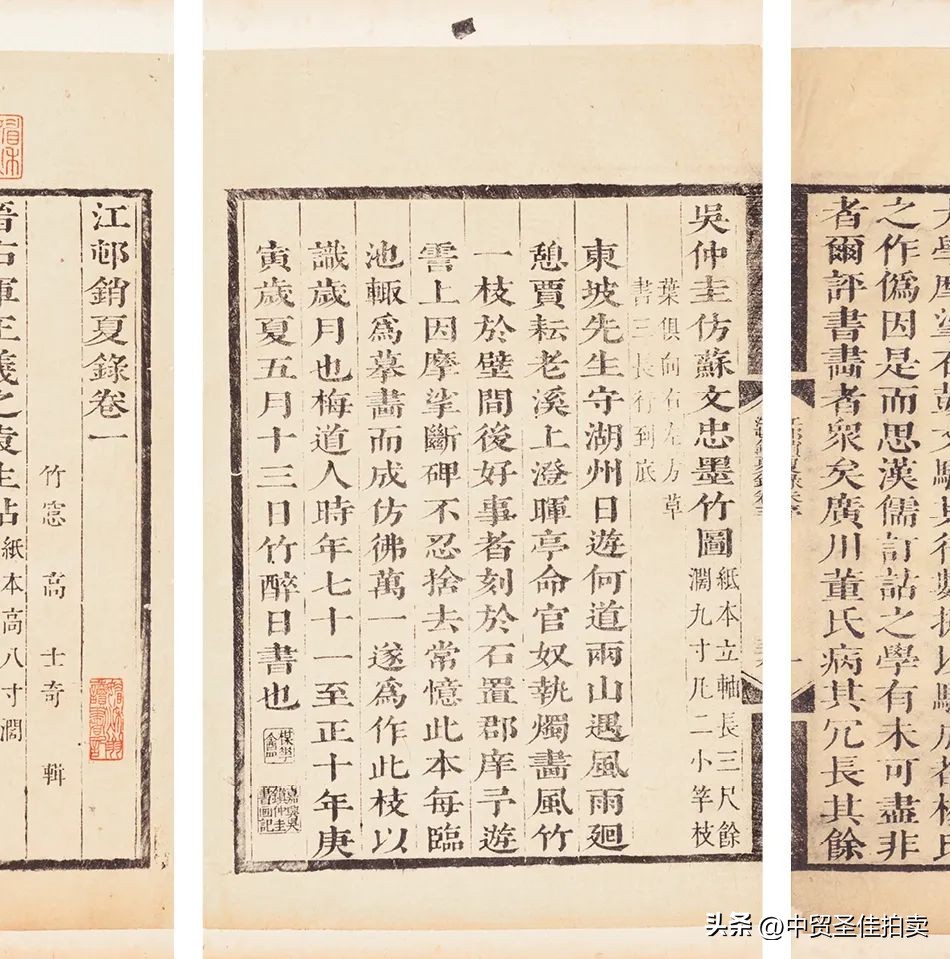 之作偽因是而思漢儒訂詁之學有未可盡非
者爾評書畫者衆矣廣川董氏病其冗長其餘
吳仲圭仿蘇文忠墨竹圖
紙本立軸長三尺餘
濶九寸凡二小竿枝
葉俱向右左方草
書三長行到底
東坡先生守湖州日遊何道兩山遇風雨廻
憩賈耘老溪上澄暉亭命官奴執燭畫風竹
一枝於壁間後好事者刻於石置郡庠予遊
霅上因摩挲斷碑不忍捨去常憶此本每臨
池輙爲摹畫而成仿彿萬一遂爲作此枝以
識歲月也梅道人時年七十一至正十年庚
寅歲夏五月十三日竹醉日書也
嘉興吳鎮仲圭書画記
江邨銷夏錄卷一
竹窓 高士奇 輯
晋右軍王羲之袁生帖 紙本高八寸濶
头条 @中贸圣佳拍卖